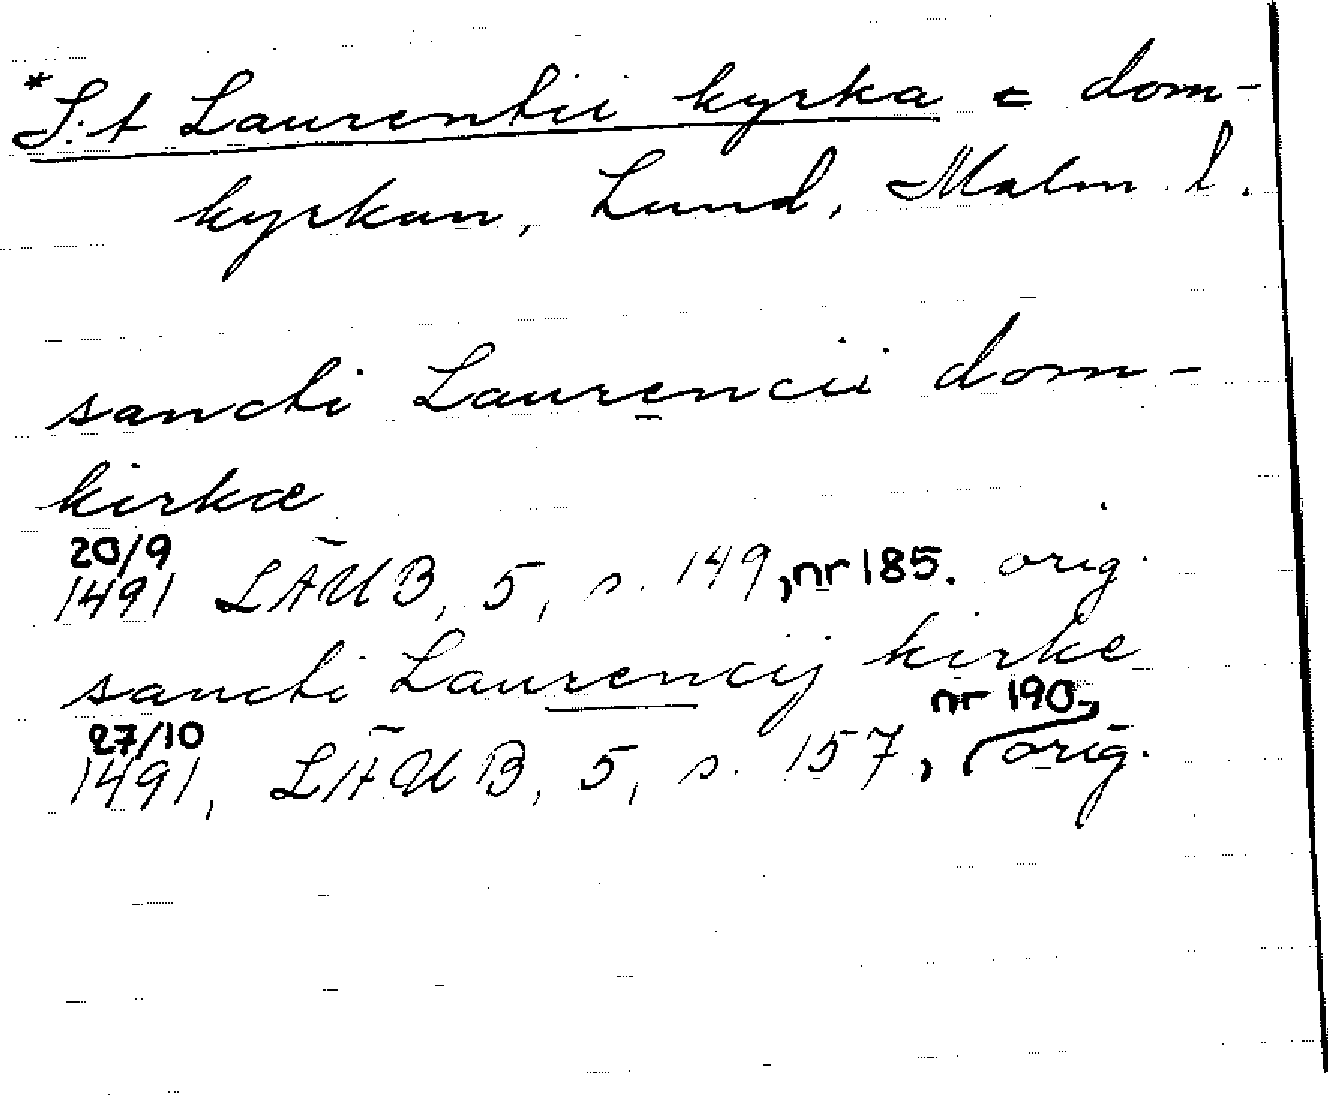 *S:t Laurentii kyrka = dom-
kyrkan, Lund, Malm. l.
sancti Laurencii dom-
kirkæ
20/9
1491 LÄUB, 5, s. 149, nr 185. orig.
sancti Laurencij kirke
27/10 nr 190,
1491, LÄUB, 5, s. 157, orig.